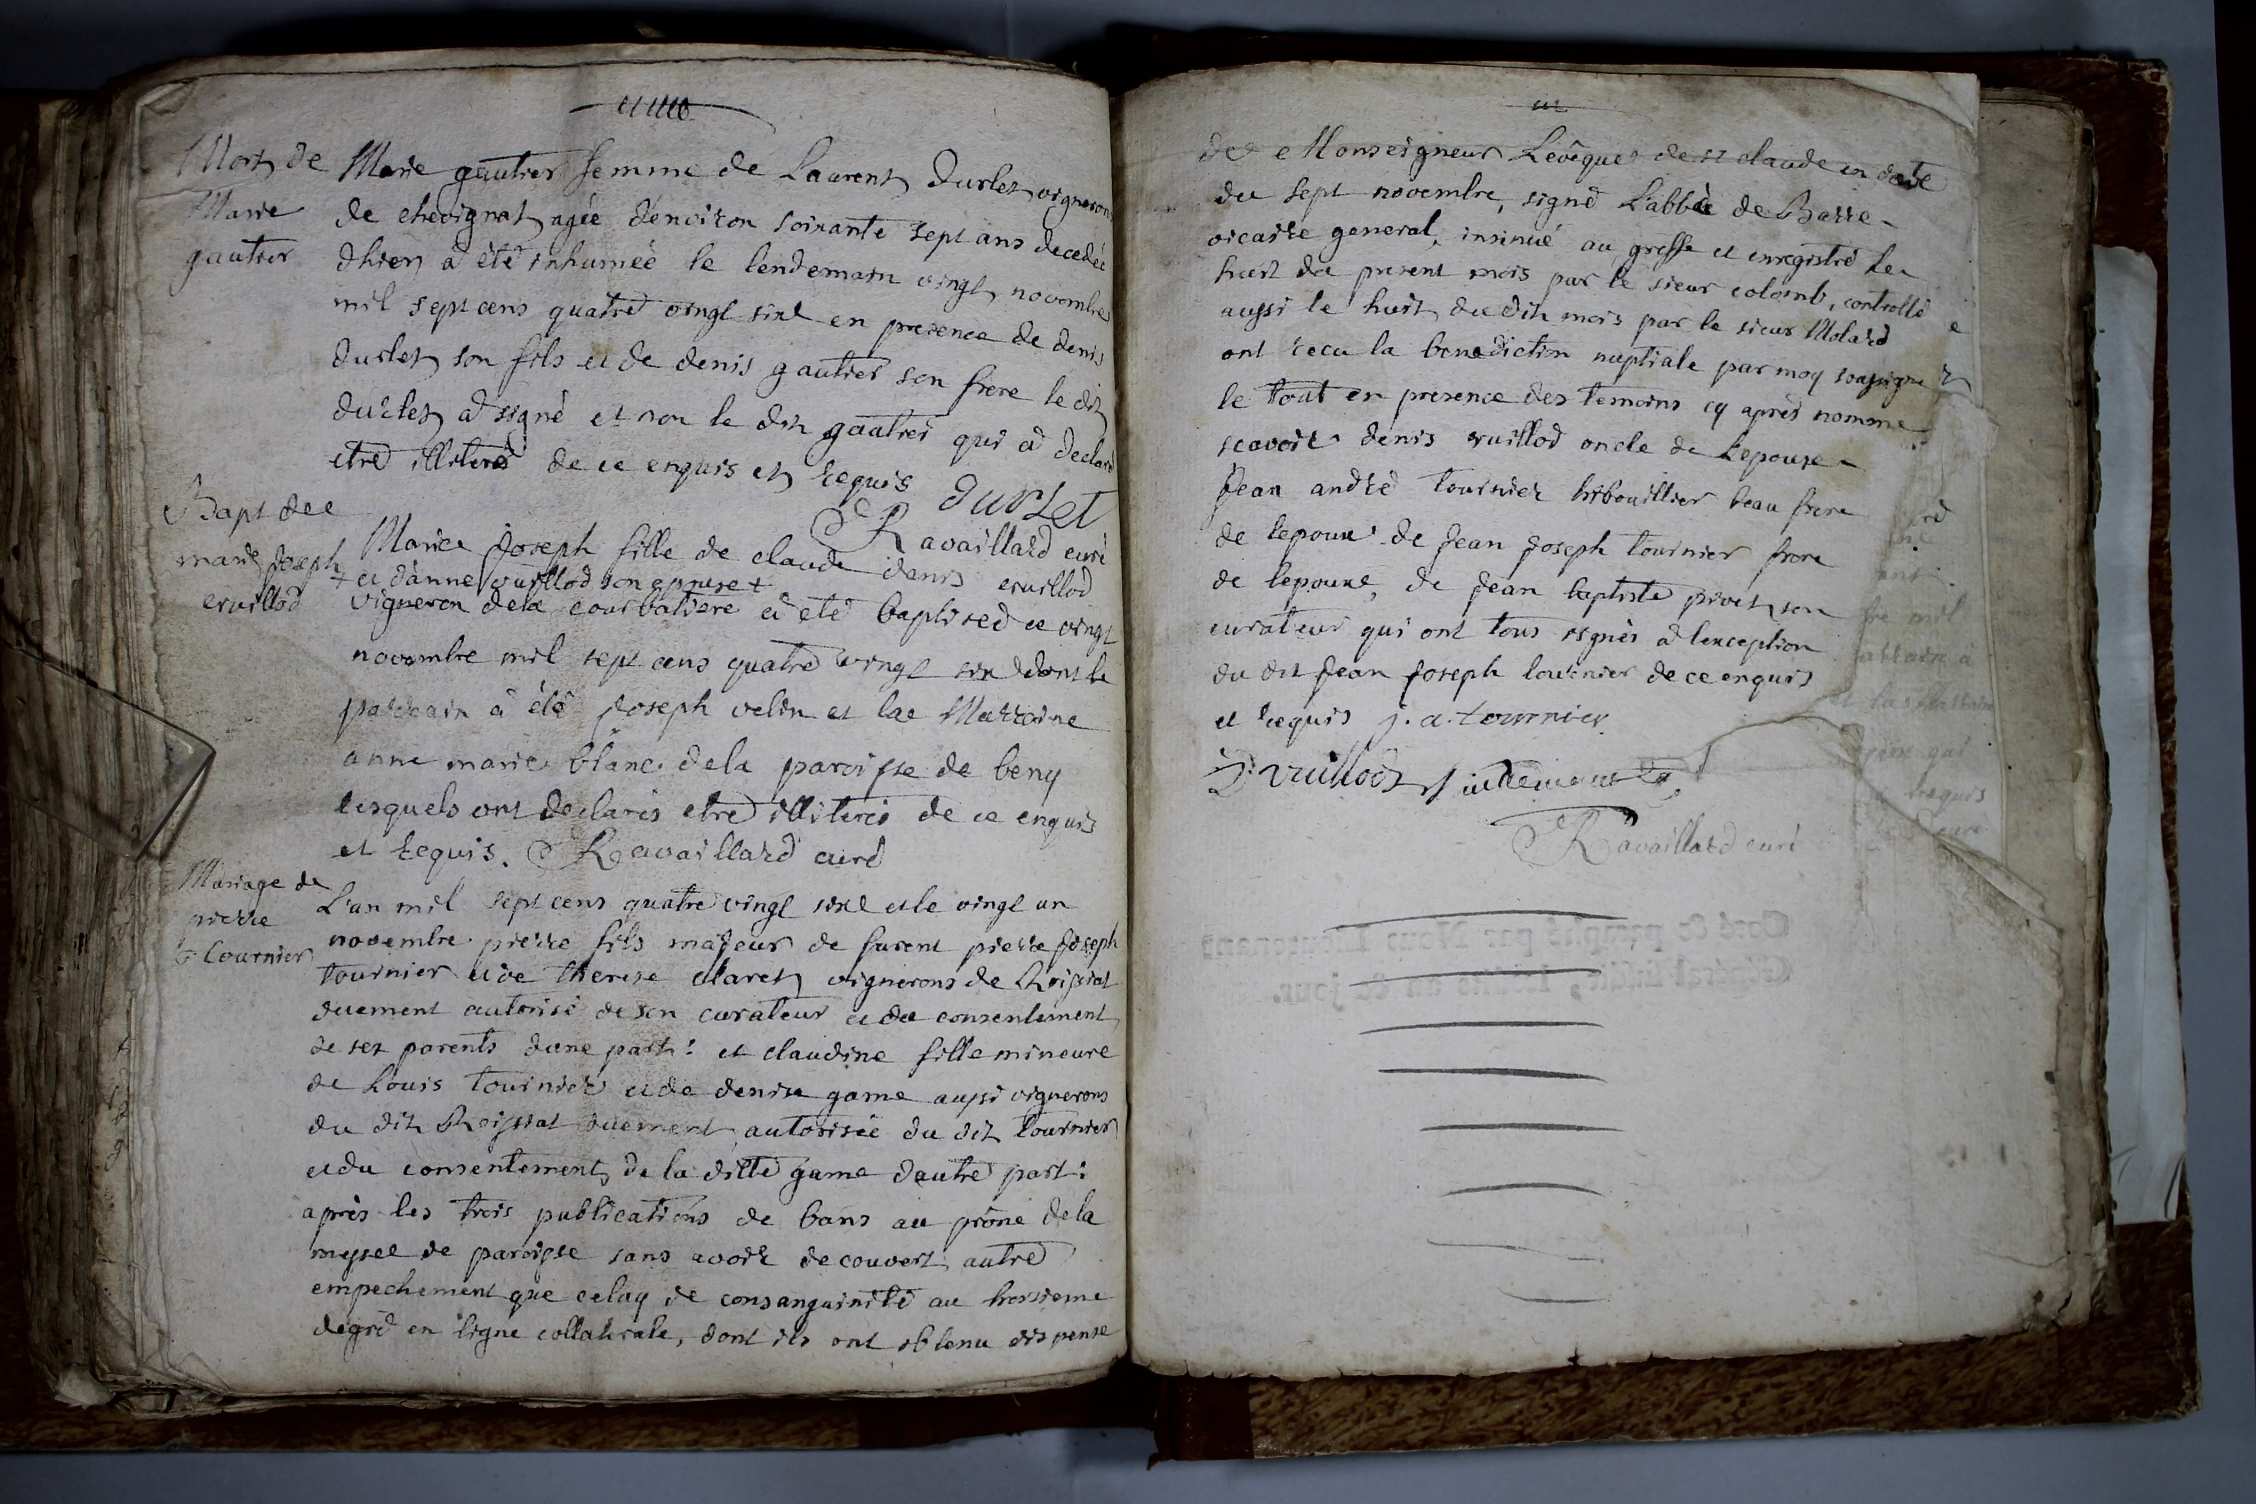 Mort de
Marie
gautier
Marie gautier femme de Laurent Durlet vigneron
de chevignat agée d'environ soixante sept ans decedée
dhier a été inhumée le lendemain vingt novembre
mil sept cens quatre vingt six en presence de denis
durlet son fils et de denis gautier son frere le dit
durlet a signé et non le dit gautier qui a declaré
etre illiteré de ce enquis et requis
durlet
Ravaillard curé
Bapt de
marie joseph
vuillod
Marie joseph fille de claude denis vuillod
+ et d'anne vuillod son epouse +
vigneron dela courbatiere a eté baptised ce vingt
novembre mil sept cens quatre vingt six dont le
parrain a été joseph velin et la Marraine
anne marie blanc dela paroisse de beny
lesquels ont declarés etre illiterés de ce enquis
et requis. Ravaillard curé
Mariage de
pierre
tournier
L'an mil sept cens quatre vingt six et le vingt un
novembre pierre fils majeur de furent pierre joseph
tournier et de therese claret vignerons de Roissiat
duement autorisé de son curateur et du consentement
de ses parents dune part : et claudine fille mineure
de Louis tournier et de denise game aussi vignerons
du dit Roissiat duement autorisée du dit tournier
et du consentement de la ditte game dautre part :
après les trois publications de bans au prône dela
messe de paroisse sans avoir decouvert autre
empechement que celuy de consanguinité au troisieme
degré en ligne collaterale, dont ils ont obtenu dispense
de Monseigneur Levêque de st claude en date
du sept novembre, signé L'abbé de Barre
vicaire general, insinué au greffe et enregistré le
huit du present mois par le sieur colomb, controllé
aussi le huit du dit mois par le sieur Molard
ont recu la benediction nuptiale par moy soussigné
le tout en presence des temoins cy après nommé
scavoir denis vuillod oncle de Lepouse
Jean andré tournier beau frere
de lepoux de jean joseph tournier frere
de lepoux, de jean baptiste pivet son
curateur qui ont tous signés a lexception
du dit jean joseph tournier de ce enquis
et requis j. a. tournier
D. vuillod
Ravaillard curé